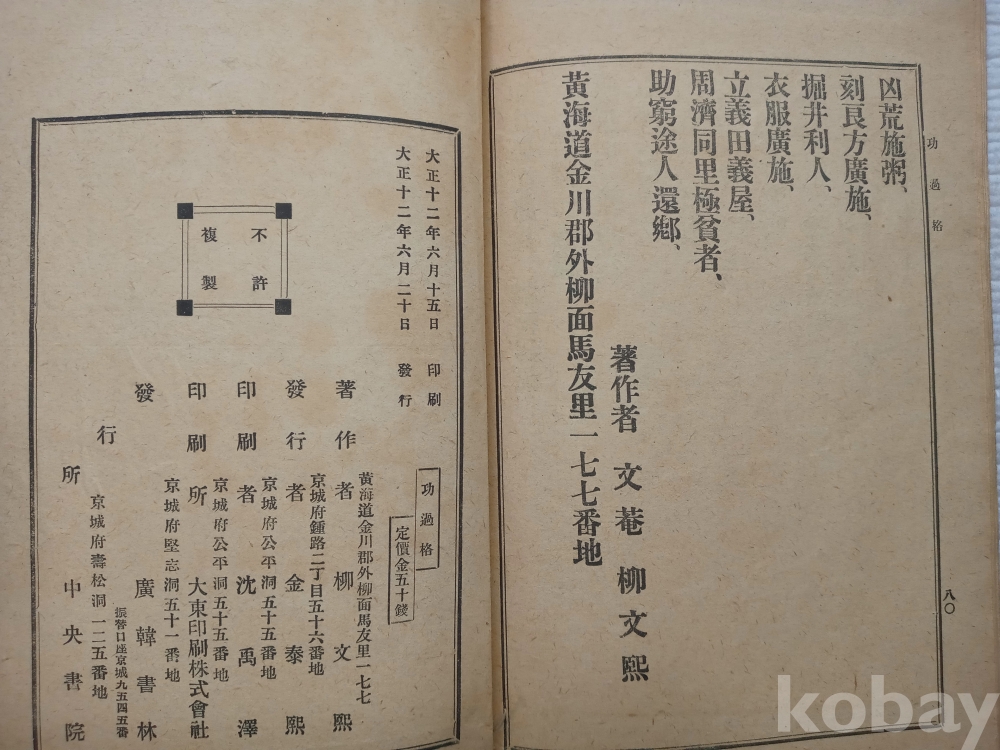 功過格
八〇
凶荒施粥、
刻良方廣施、
掘井利人、
衣服廣施、
立義田義屋、
周濟同里極貧者、
助窮途人還鄕、
著作者 文菴 柳文熙
黃海道金川郡外柳面馬友里一七七番地
大正十二年六月十五日 印刷
大正十二年六月二十日 發行
不許
複製
功過格
定價金五十錢
黃海道金川郡外柳面馬友里一七七
著作者 柳文熙
京城府鍾路二丁目五十六番地
發行者 金泰熙
京城府公平洞五十五番地
印刷者 沈禹澤
京城府公平洞五十五番地
印刷所 大東印刷株式會社
京城府堅志洞五十一番地
發行所
廣韓書林
振替口座京城九五四五番
京城府壽松洞一二五番地
中央書院
kobay